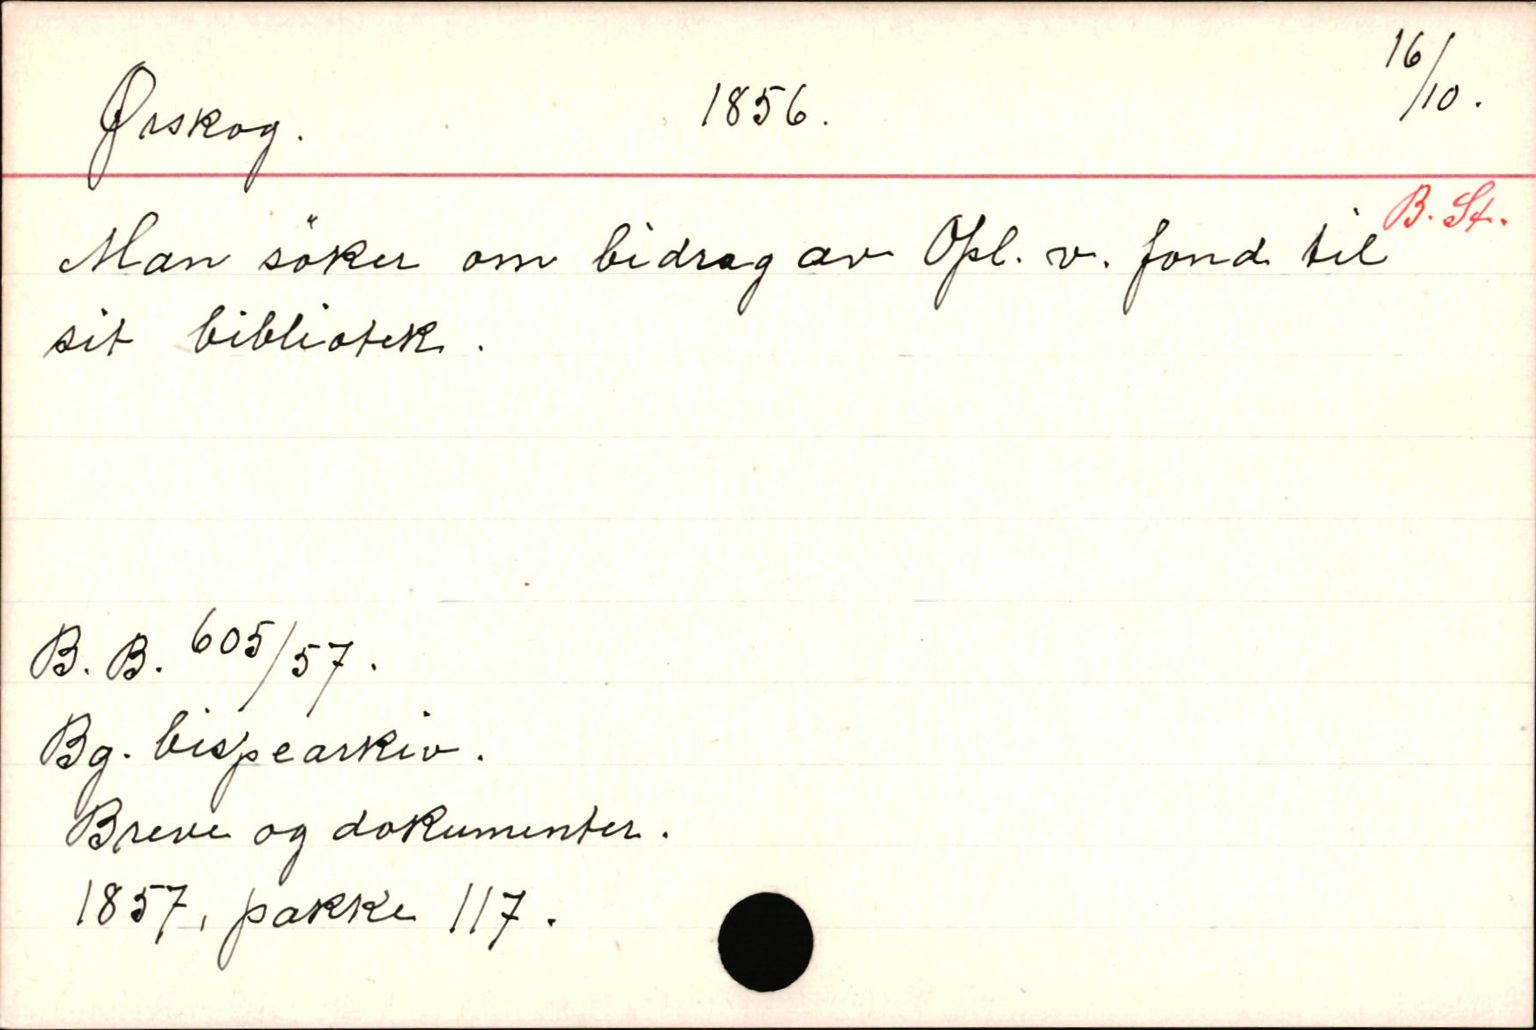 Ørskog. 1856. 16/10.
B. St.
Man söker om bidrag av Opl. v. fond til
sit bibliotek.
B. B. 605/57.
Bg. bispearkiv.
Breve og dokumenter.
1857, pakke 117.